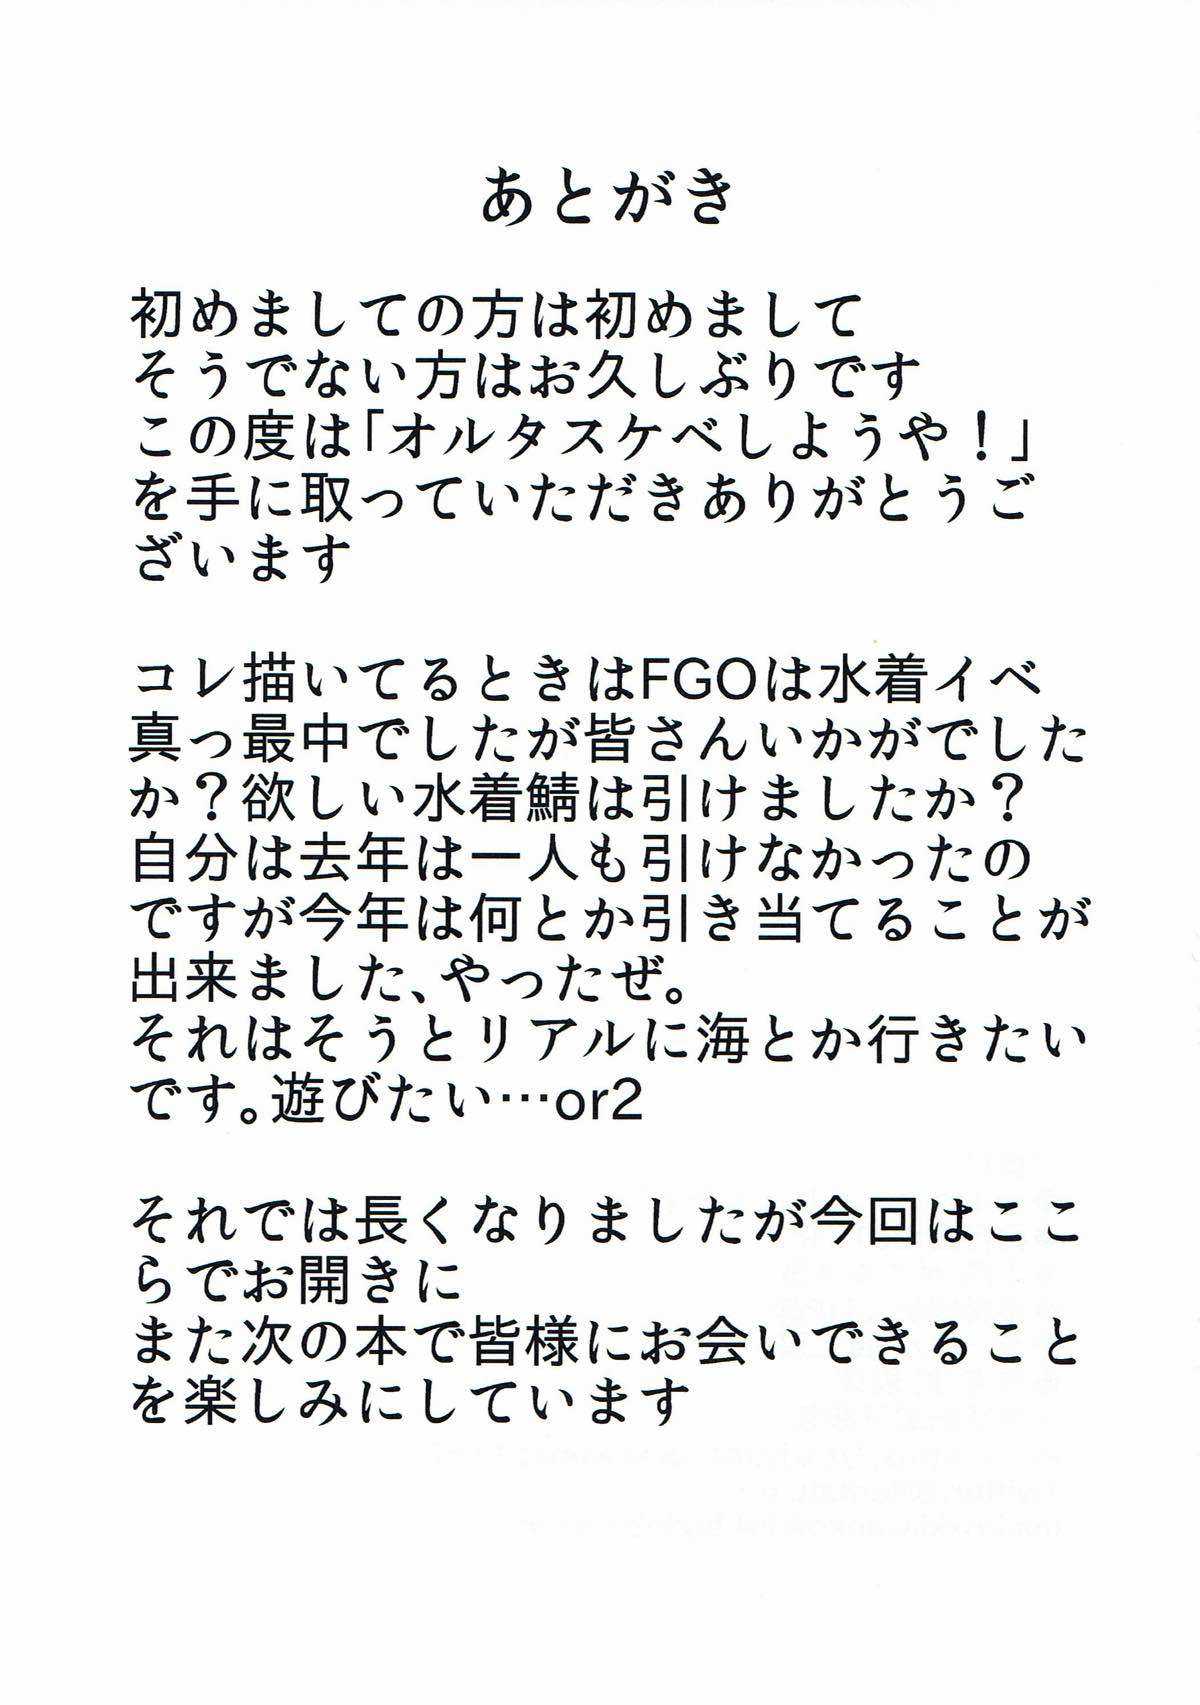 あとがき
初めましての方は初めまして
そうでない方はお久しぶりです
この度は「オルタスケベしようや！」
を手に取っていただきありがとうご
ざいます
コレ描いてるときはFGOは水着イベ
真っ最中でしたが皆さんいかがでした
か？欲しい水着鯖は引けましたか？
自分は去年は一人も引けなかったの
ですが今年は何とか引き当てることが
出来ました、やったぜ。
それはそうとリアルに海とか行きたい
です。遊びたい…or2
それでは長くなりましたが今回はここ
らでお開きに
また次の本で皆様にお会いできること
を楽しみにしています